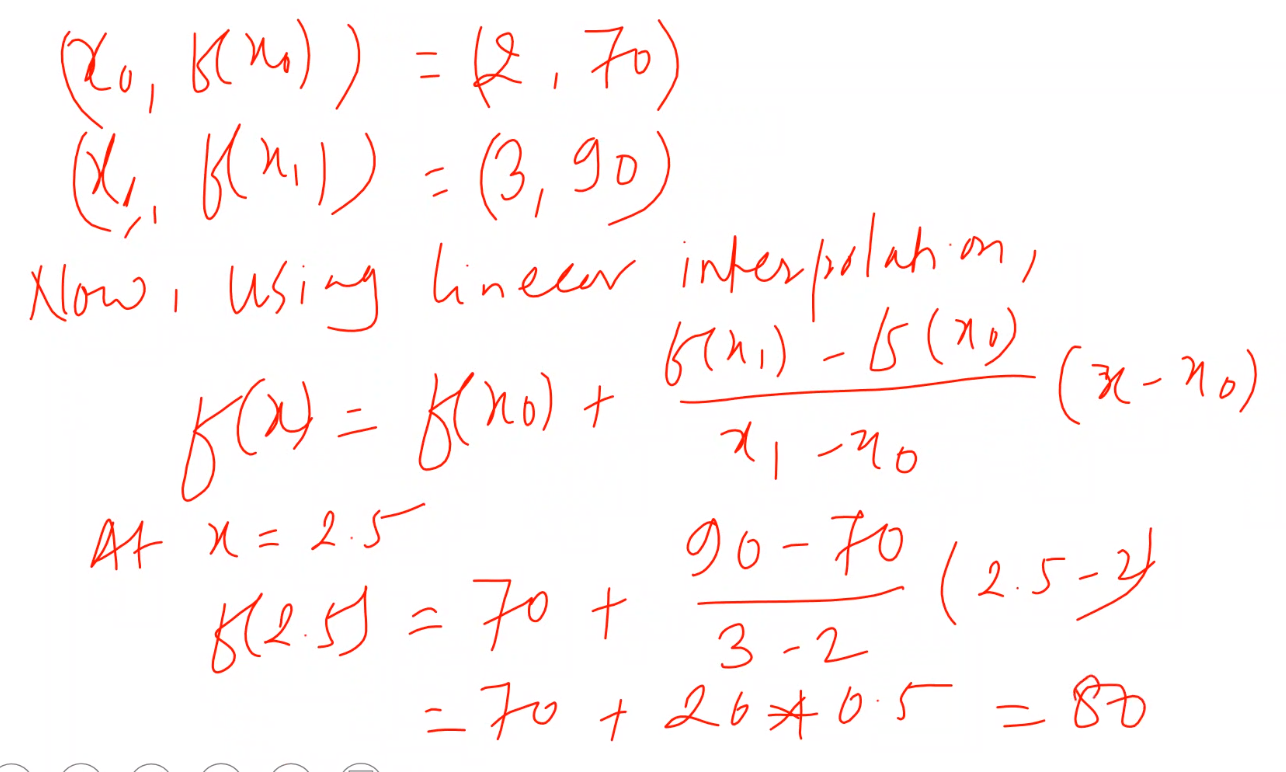 (x₀, f(x₀)) = (2, 70)
(x₁, f(x₁)) = (3, 90)
Now, using linear interpolation,
f(x) = f(x₀) + (f(x₁) - f(x₀)) / (x₁ - x₀) (x - x₀)
At x = 2.5
f(2.5) = 70 + (90 - 70) / (3 - 2) (2.5 - 2)
= 70 + 20 * 0.5 = 80